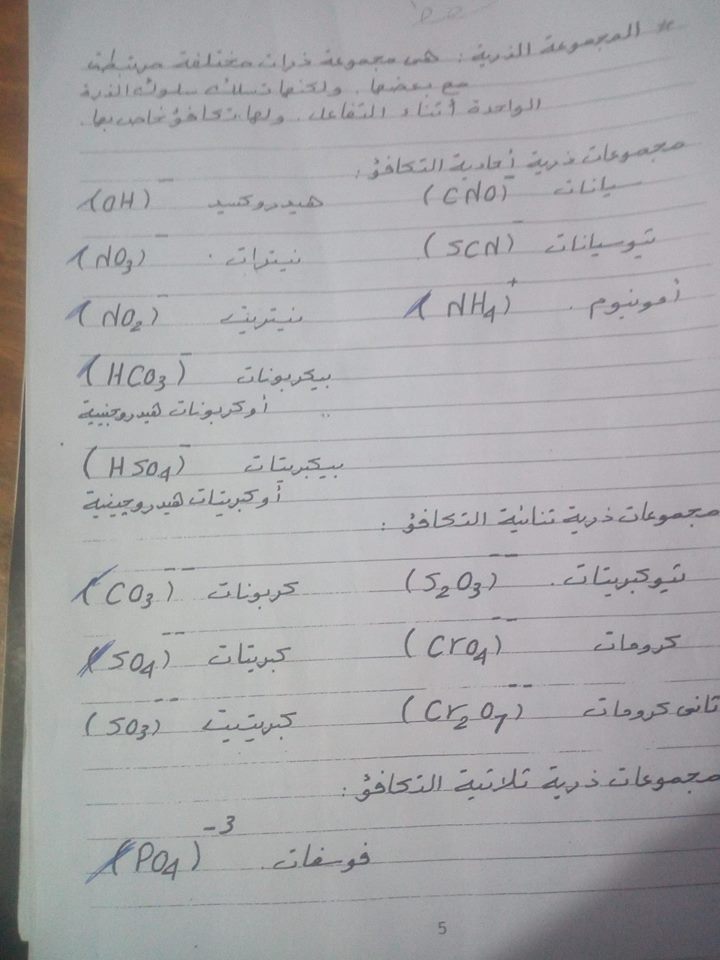 * المجموعة الذرية : هى مجموعة ذرات مختلفة مرتبطة
مع بعضها. ولكنها تسلك سلوك الذرة
الواحدة أثناء التفاعل. ولها تكافؤ خاص بها.
مجموعات ذرية أحادية التكافؤ :
سيانات (CNO)⁻ هيدروكسيد (OH)⁻
ثيوسيانات (SCN)⁻ نيترات (NO₃)⁻
أمونيوم (NH₄)⁺ نيتريت (NO₂)⁻
بيكربونات (HCO₃)⁻
أو كربونات هيدروجينية
بيكبريتات (HSO₄)⁻
أو كبريتات هيدروجينية
مجموعات ذرية ثنائية التكافؤ :
ثيوكبريتات (S₂O₃)⁻⁻ كربونات (CO₃)⁻⁻
كرومات (CrO₄)⁻⁻ كبريتات (SO₄)⁻⁻
ثانى كرومات (Cr₂O₇)⁻⁻ كبريتيت (SO₃)⁻⁻
مجموعات ذرية ثلاثية التكافؤ :
فوسفات (PO₄)⁻³
5